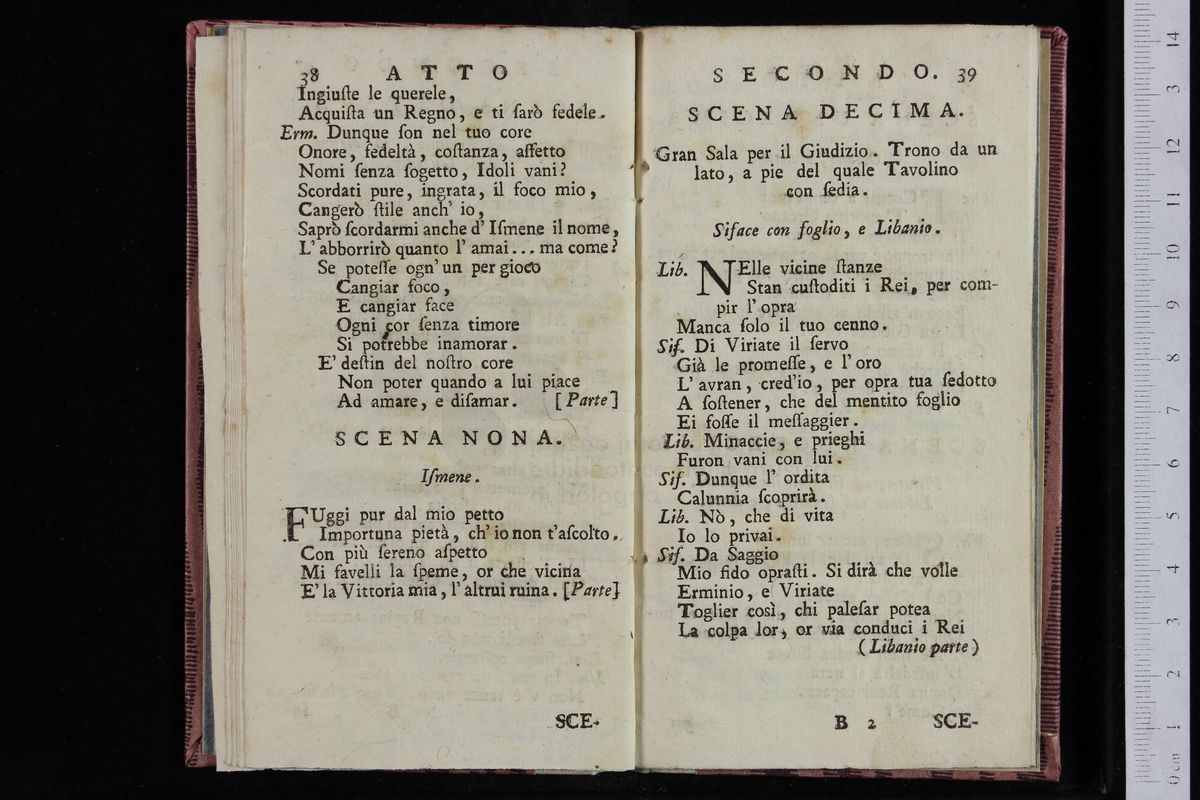 38 ATTO
Ingiuſte le querele,
Acquiſta un Regno, e ti ſarò fedele.
Erm. Dunque ſon nel tuo core
Onore, fedeltà, coſtanza, affetto
Nomi ſenza ſogetto, Idoli vani?
Scordati pure, ingrata, il foco mio,
Cangerò ſtile anch' io,
Saprò ſcordarmi anche d' Iſmene il nome,
L' abborrirò quanto l' amai... ma come?
Se poteſſe ogn' un per gioco
Cangiar foco,
E cangiar face
Ogni cor ſenza timore
Si potrebbe inamorar.
E' deſtin del noſtro core
Non poter quando a lui piace
Ad amare, e diſamar. [Parte]
SCENA NONA.
Iſmene.
FUggi pur dal mio petto
Importuna pietà, ch' io non t'aſcolto.
Con più ſereno aſpetto
Mi favelli la ſpeme, or che vicina
E' la Vittoria mia, l' altrui ruina. [Parte]
SCE-
SECONDO. 39
SCENA DECIMA.
Gran Sala per il Giudizio. Trono da un
lato, a pie del quale Tavolino
con ſedia.
Siface con foglio, e Libanio.
Lib. NElle vicine ſtanze
Stan cuſtoditi i Rei, per com-
pir l' opra
Manca ſolo il tuo cenno.
Sif. Di Viriate il ſervo
Già le promeſſe, e l' oro
L' avran, cred'io, per opra tua ſedotto
A ſoſtener, che del mentito foglio
Ei foſſe il meſſaggier.
Lib. Minaccie, e prieghi
Furon vani con lui.
Sif. Dunque l' ordita
Calunnia ſcoprirà.
Lib. Nò, che di vita
Io lo privai.
Sif. Da Saggio
Mio fido opraſti. Si dirà che volle
Erminio, e Viriate
Toglier così, chi paleſar potea
La colpa lor, or via conduci i Rei
(Libanio parte)
B 2 SCE-